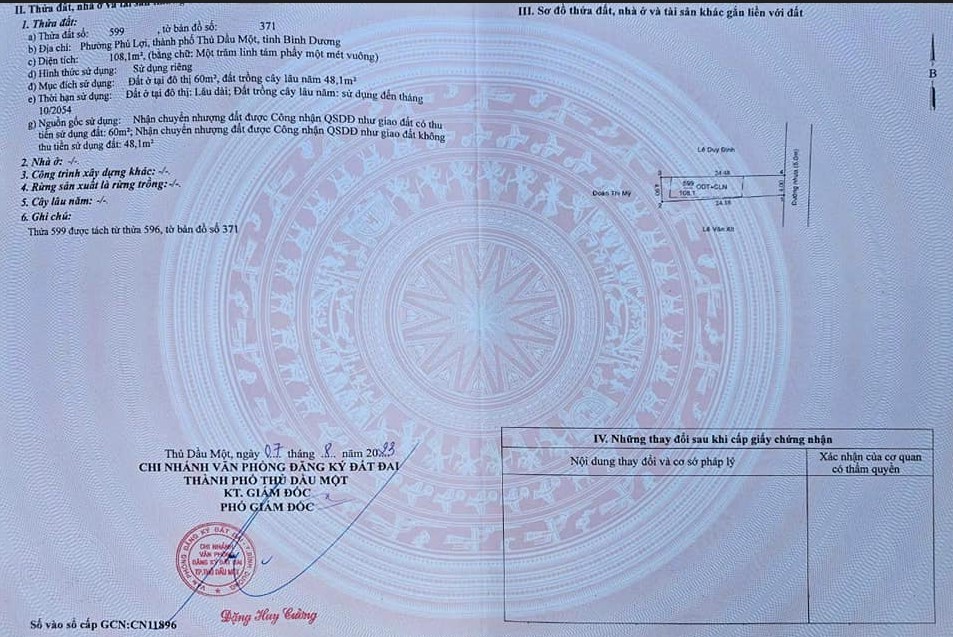 II. Thửa đất, nhà ở và tài sản
1. Thửa đất:
a) Thửa đất số: 599 , tờ bản đồ số: 371
b) Địa chỉ: Phường Phú Lợi, thành phố Thủ Dầu Một, tỉnh Bình Dương
c) Diện tích: 108,1m², (bằng chữ: Một trăm linh tám phẩy một mét vuông)
d) Hình thức sử dụng: Sử dụng riêng
đ) Mục đích sử dụng: Đất ở tại đô thị 60m², đất trồng cây lâu năm 48,1m²
e) Thời hạn sử dụng: Đất ở tại đô thị: Lâu dài; Đất trồng cây lâu năm: sử dụng đến tháng
10/2054
g) Nguồn gốc sử dụng: Nhận chuyển nhượng đất được Công nhận QSDĐ như giao đất có thu
tiền sử dụng đất: 60m²; Nhận chuyển nhượng đất được Công nhận QSDĐ như giao đất không
thu tiền sử dụng đất: 48,1m²
2. Nhà ở: -/-
3. Công trình xây dựng khác: -/-
4. Rừng sản xuất là rừng trồng:-/-
5. Cây lâu năm: -/-
6. Ghi chú:
Thửa 599 được tách từ thửa 596, tờ bản đồ số 371
Thủ Dầu Một, ngày 07 tháng 8 năm 2023
CHI NHÁNH VĂN PHÒNG ĐĂNG KÝ ĐẤT ĐAI
THÀNH PHỐ THỦ DẦU MỘT
KT. GIÁM ĐỐC
PHÓ GIÁM ĐỐC
VĂN PHÒNG ĐĂNG KÝ ĐẤT ĐAI T.BÌNH DƯƠNG
CHI NHÁNH
VĂN PHÒNG
ĐĂNG KÝ ĐẤT ĐAI
TP.THỦ DẦU MỘT
Đặng Huy Cường
Số vào sổ cấp GCN:CN11896
III. Sơ đồ thửa đất, nhà ở và tài sản khác gắn liền với đất
B
Lê Duy Định
24.48
4
Đoàn Thị Mỹ
599
108.1
ODT+CLN
4.00
Đường nhựa (5.0m)
2
Lê Văn Xít
IV. Những thay đổi sau khi cấp giấy chứng nhận
Nội dung thay đổi và cơ sở pháp lý
Xác nhận của cơ quan
có thẩm quyền